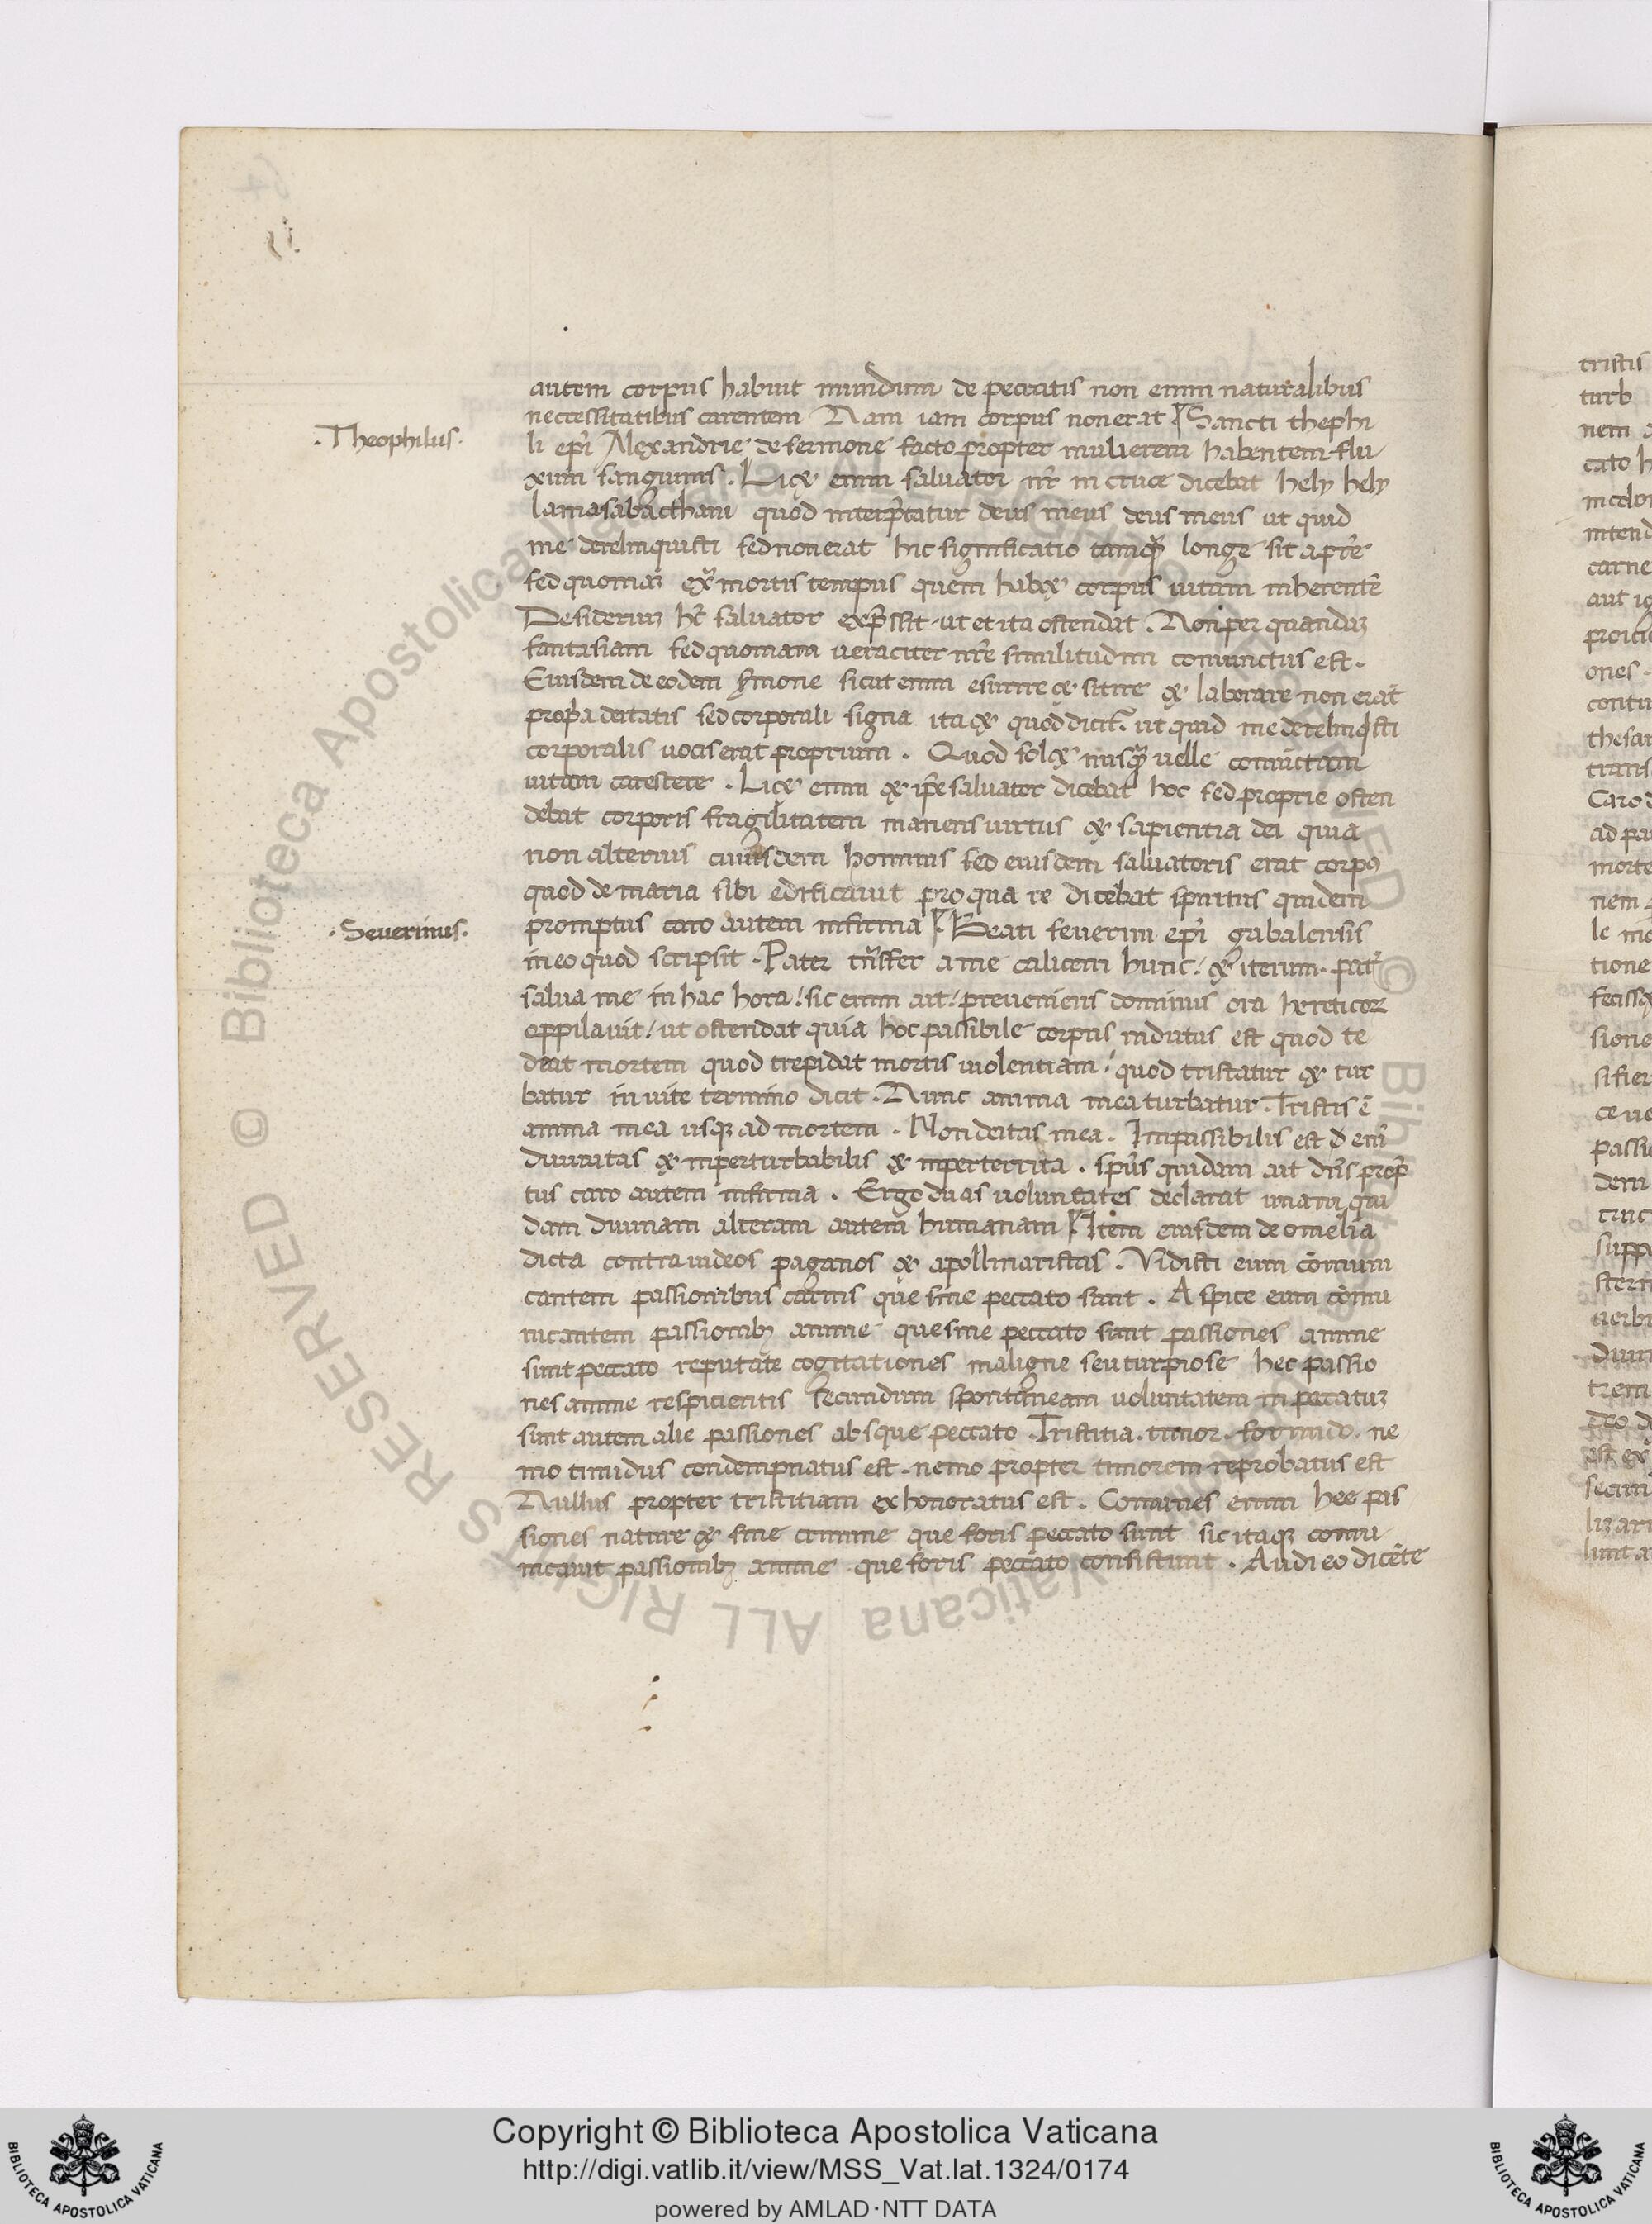 autem corpus habuit mundum de peccatis non enim naturalibus
neccessitatibus carentem Nam iam corpus non erat Sancti thephi
.Theophilus.
li epi Alexandrie de sermone facto propter mulierem habentem flu
xum sanguinis . Licet enim saluator nr in cruce dicebat hely hely
lamasabacthani quod interpretatur deus meus deus meus ut quid
me derelinquisti sed non erat hic significatio tamqua longe sit a pre
sed quoniam mortis tempus quem habet corpus uitam inherente
Desiderium hc saluator expressit ut et ita ostendat . Non per quandam
fantasiam sed quoniam ueraciter nre similitudini coniunctus est .
Eiusdem de eodem sermone sicut enim esurire et sitire et laborare non erat
propria deitatis sed corporali signa ita et quod dicit ut quid me derelinquisti
corporalis uocis erat proprium . Quod solet nusqua uelle coniunctam
uitam carescere . Licet enim et ipse saluator dicebat hoc sed proprie osten
debat corporis fragilitatem manens uirtus et sapientia dei quia
non alterius cuiusdem hominis sed eiusdem saluatoris erat corpus
quod de maria sibi edificauit pro qua re dicebat spiritus quidem
.Seuerinus.
promptus caro autem infirma Beati seuerini epi gabalensis
in eo quod scripsit . Pater transfer a me calicem hunc / et iterum . pater
salua me in hac hora / sic enim ait / preueniens dominus ora hereticorum
oppilauit / ut ostendat quia hoc passibile corpus indutus est quod te
deat mortem quod trepidat mortis uiolentiam / quod tristatur et tur
batur in uite termino dicit . Nunc anima mea turbatur . Tristis e
anima mea usque ad mortem . Non deitas mea . Impassibilis est d eni
diuinitas et inperturbabilis et inperterrita . spus quidam ait dns prop
tus caro autem infirma . Ergo duas uoluntates declarat unam qui
dam diuinam alteram autem humanam Item eiusdem de omelia
dicta contra iudeos paganos et apollinaristas . Vidisti eum comuni
cantem passionibus carnis que sine peccato sunt . Aspice eum comu
nicantem passionibus anime que sine peccato sunt passiones anime
sunt peccato reputate cogitationes maligne seu turpiose hec passio
nes anime respicientis secundum spontaneam uoluntatem in peccatum
sunt autem alie passiones absque peccato . Tristitia . timor . formido . ne
mo timidus condempnatus est . nemo propter timorem reprobatus est
Nullus propter tristitiam exhonoratus est . Comunes enim hee pas
siones nature et sine crimine que foris peccato sunt sic itaque comu
nicauit passionibus anime que foris peccato consistunt . Audi eo dicete
tristis
turb
© Biblioteca Apostolica Vaticana ALL RIGHTS RESERVED
Copyright © Biblioteca Apostolica Vaticana
http://digi.vatlib.it/view/MSS_Vat.lat.1324/0174
powered by AMLAD·NTT DATA
BIBLIOTECA APOSTOLICA VATICANA
BIBLIOTECA APOSTOLICA VATICANA